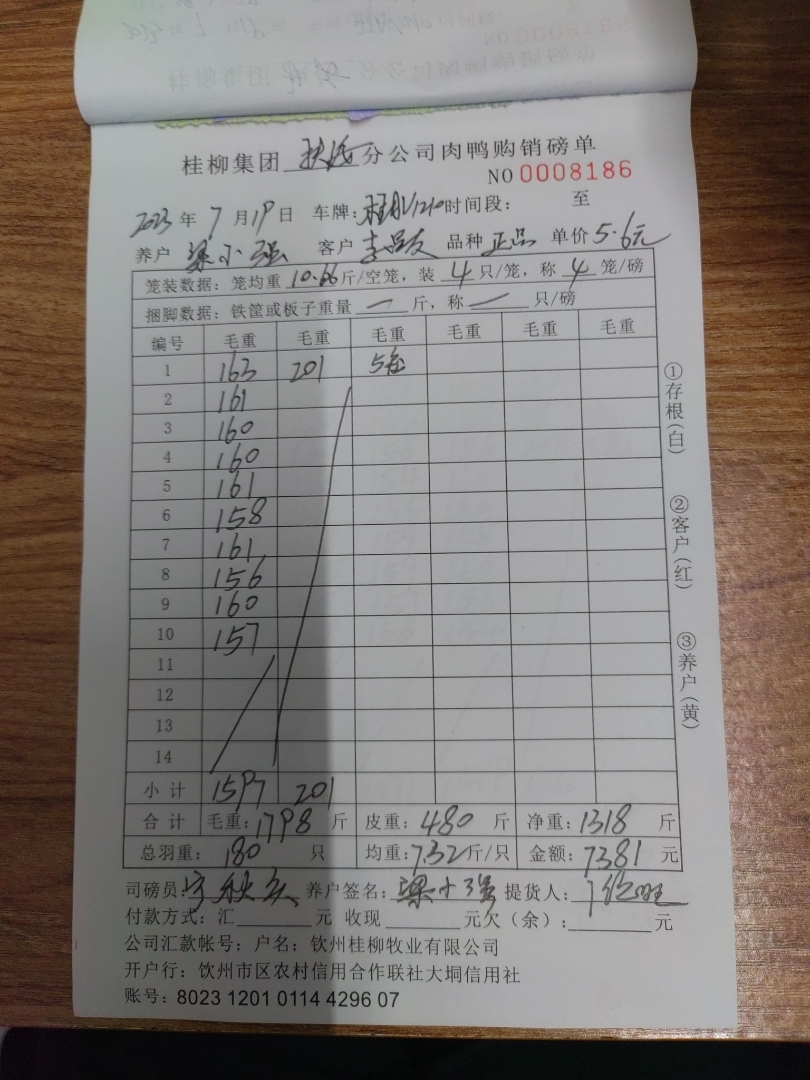 桂柳集团 扶绥 分公司肉鸭购销磅单
NO 0008186
2023 年 7 月 19 日 车牌: 1210 时间段: 至
养户 梁小强 客户 李品友 品种 正品 单价 5.6元
笼装数据: 笼均重 10.66 斤/空笼, 装 4 只/笼, 称 4 笼/磅
捆脚数据: 铁筐或板子重量 一 斤, 称 一 只/磅
编号 毛重 毛重 毛重 毛重 毛重 毛重
1 163 201 5笼
2 161
3 160
4 160
5 161
6 158
7 161
8 156
9 160
10 157
11
12
13
14
小计 1597 201
合计 毛重: 1798 斤 皮重: 480 斤 净重: 1318 斤
总羽重: 180 只 均重: 7.32 斤/只 金额: 7381 元
司磅员: 养户签名: 梁小强 提货人:
付款方式: 汇 元 收现 元 欠（余）: 元
公司汇款帐号: 户名: 钦州桂柳牧业有限公司
开户行: 饮州市区农村信用合作联社大垌信用社
账号: 8023 1201 0114 4296 07
①存根(白)
②客户(红)
③养户(黄)